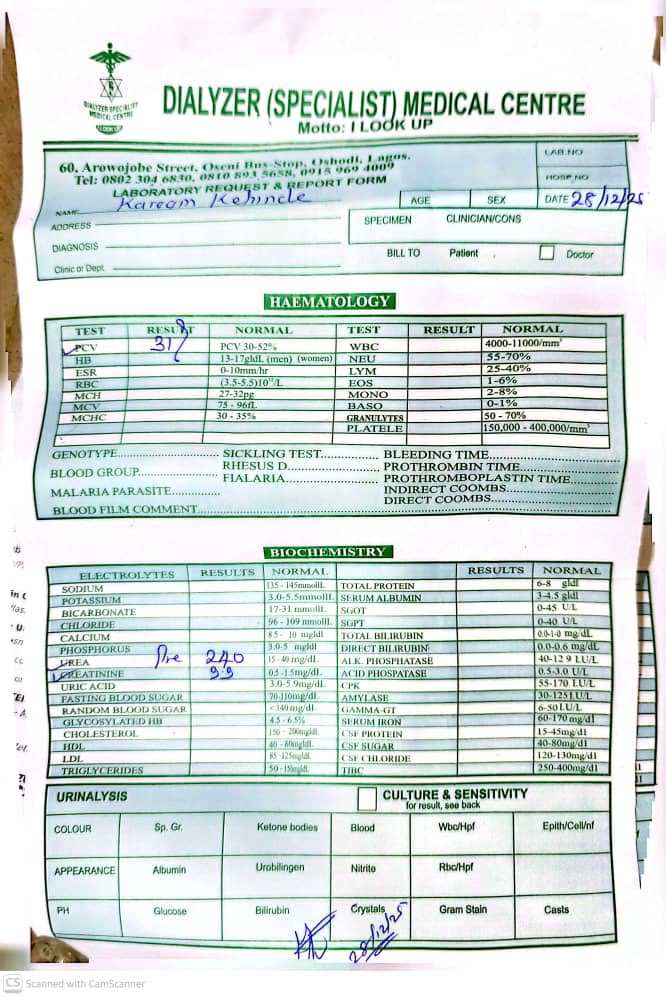 DIALYZER SPECIALIST
MEDICAL CENTRE
I LOOK UP
DIALYZER (SPECIALIST) MEDICAL CENTRE
Motto: I LOOK UP
60, Arowojobe Street, Oseni Bus-Stop, Oshodi, Lagos.
Tel: 0802 304 6830, 0810 893 5658, 0915 969 4009
LABORATORY REQUEST & REPORT FORM
LAB.NO
HOSP.NO
NAME Kareem Kehinde AGE SEX DATE 28/12/25
ADDRESS SPECIMEN CLINICIAN/CONS
DIAGNOSIS BILL TO Patient Doctor
Clinic or Dept.
HAEMATOLOGY
TEST RESULT NORMAL TEST RESULT NORMAL
PCV 31 PCV 30-52% WBC 4000-11000/mm³
HB 13-17gldL (men) (women) NEU 55-70%
ESR 0-10mm/hr LYM 25-40%
RBC (3.5-5.5)10¹²/L EOS 1-6%
MCH 27-32pg MONO 2-8%
MCV 75 - 96fL BASO 0-1%
MCHC 30 - 35% GRANULYTES 50 - 70%
PLATELE 150,000 - 400,000/mm³
GENOTYPE SICKLING TEST BLEEDING TIME
BLOOD GROUP RHESUS D PROTHROMBIN TIME
FIALARIA PROTHROMBOPLASTIN TIME
MALARIA PARASITE INDIRECT COOMBS
DIRECT COOMBS
BLOOD FILM COMMENT
BIOCHEMISTRY
ELECTROLYTES RESULTS NORMAL RESULTS NORMAL
SODIUM 135 - 145mmollL TOTAL PROTEIN 6-8 gldl
POTASSIUM 3.0-5.5mmollL SERUM ALBUMIN 3-4.5 gldl
BICARBONATE 17-31 mmollL SGOT 0-45 U/L
CHLORIDE 96 - 109 mmollL SGPT 0-40 U/L
CALCIUM 8.5 - 10 mgldl TOTAL BILIRUBIN 0.0-1-0 mg/dL
PHOSPHORUS 3.0-5 mgldl DIRECT BILIRUBIN 0.0-0.6 mg/dL
UREA Pre 240 15- 40 mg/dL ALK. PHOSPHATASE 40-12 9 I.U/L
CREATININE 9.9 0.5-1.5mg/dL ACID PHOSPATASE 0.5-3.0 U/L
URIC ACID 3.0-5.9mg/dL CPK 55-170 I.U/L
FASTING BLOOD SUGAR 70-110mg/dL AMYLASE 30-125 I.U/L
RANDOM BLOOD SUGAR <140mg/dL GAMMA-GT 6-50 I.U/L
GLYCOSYLATED HB 4.5 - 6.5% SERUM IRON 60-170 mg/dl
CHOLESTEROL 150 - 200mgldL CSF PROTEIN 15-45mg/dl
HDL 40 - 80mgldL CSF SUGAR 40-80mg/dl
LDL 85 -125mgldL CSF CHLORIDE 120-130mg/dl
TRIGLYCERIDES 50 - 150mgldL TIBC 250-400mg/dl
URINALYSIS CULTURE & SENSITIVITY
for result, see back
COLOUR Sp. Gr. Ketone bodies Blood Wbc/Hpf Epith/Cell/nf
APPEARANCE Albumin Urobilingen Nitrite Rbc/Hpf
PH Glucose Bilirubin Crystals Gram Stain Casts
28/12/25
CS Scanned with CamScanner